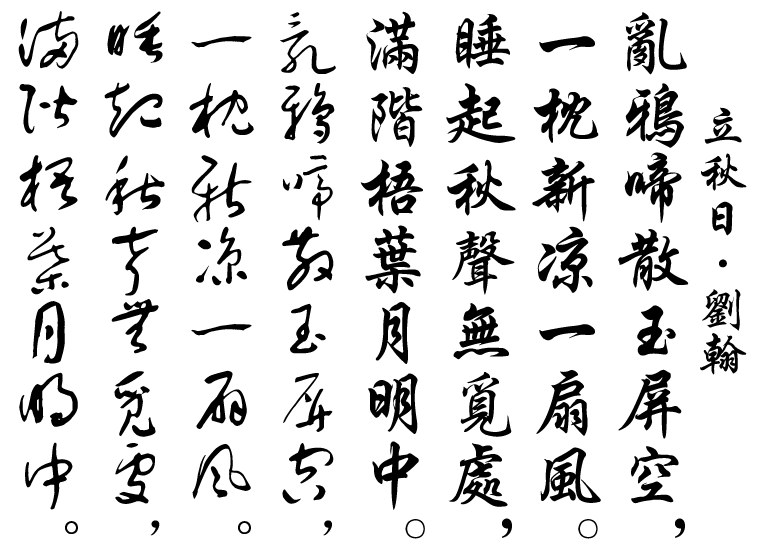 立秋日·劉翰
亂鴉啼散玉屏空,
一枕新凉一扇風。
睡起秋聲無覓處,
滿階梧葉月明中。
乱鴉啼散玉屏空,
一枕新凉一扇風。
睡起秋声無覓處,
滿階梧葉月明中。